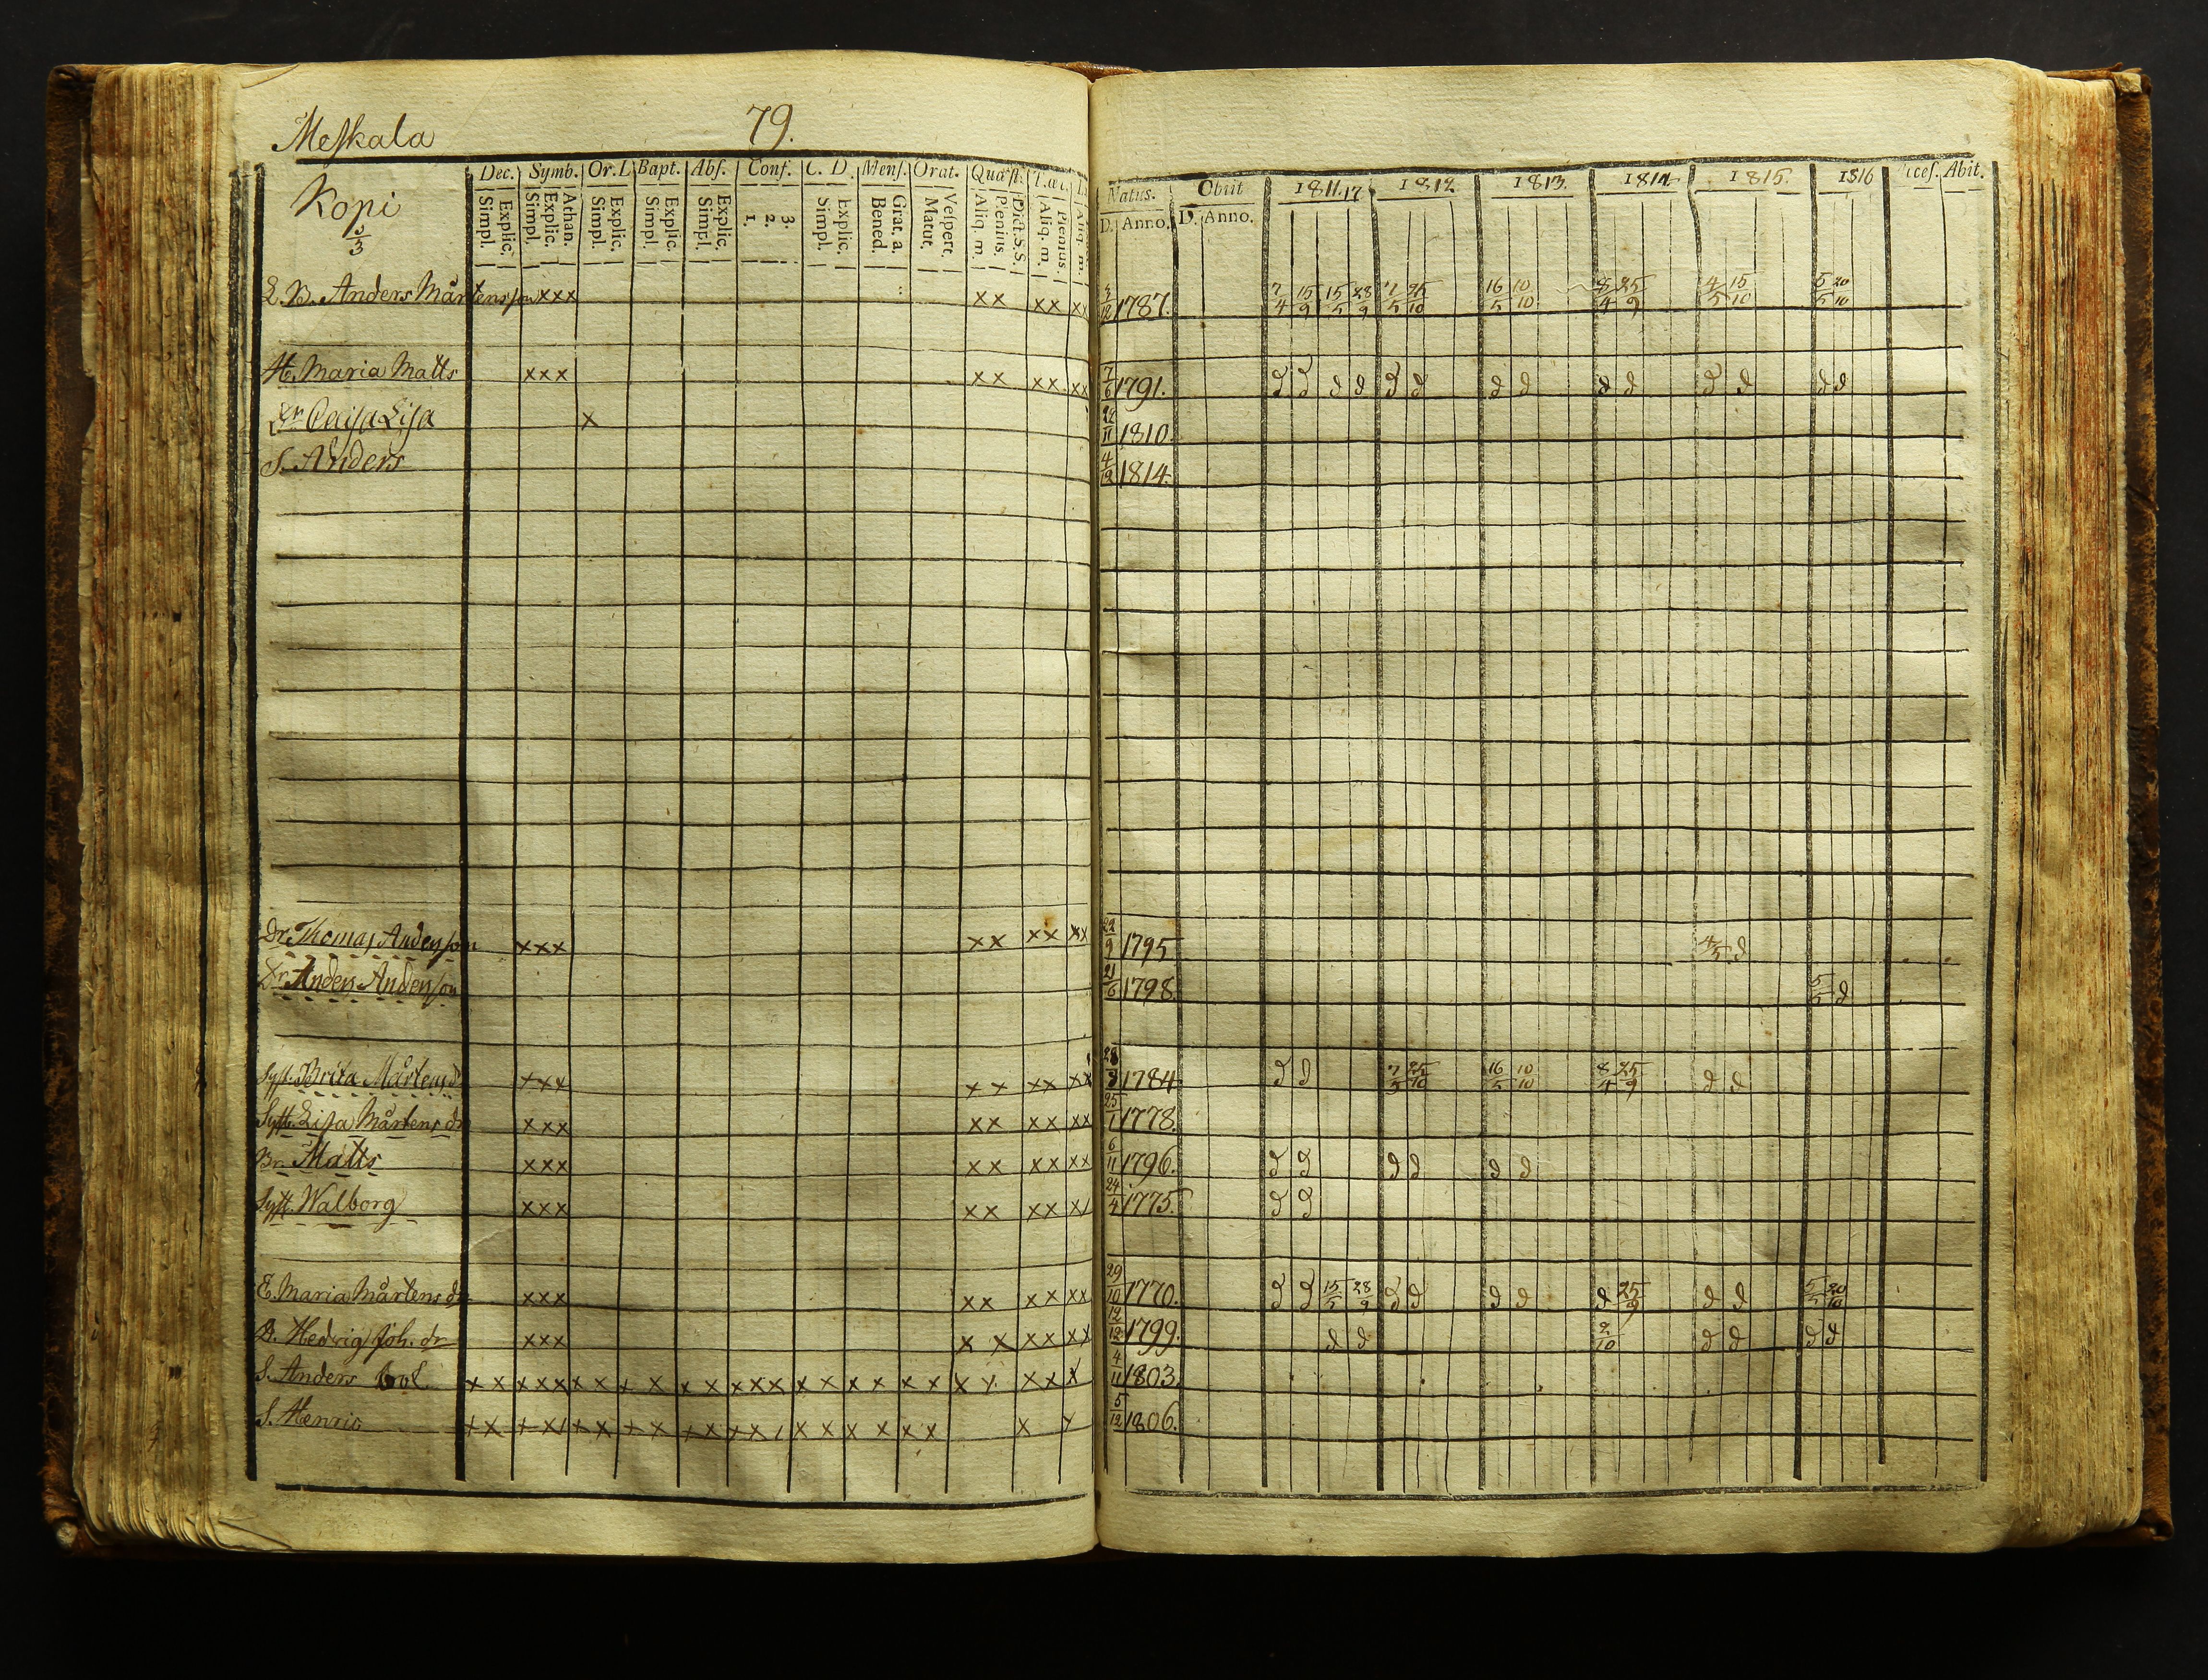 Meskala 79.
Kopi
Dec. Symb. Or. D Bapt. Abs. Conf. C. D. Mens. Orat. Quæst.
Simpl. Explic. Simpl. Explic. Athan. Simpl. Explic. Simpl. Explic. Simpl. Explic. 1. 2. 3. Simpl. Explic. Bened. Grat. a. Matut. Vespert. Aliq. m. Plenius. Dict. S.S. Aliq. m. Plenius. Aliq. m.
Natus. Obiit 1811.17 1812. 1813. 1814 1815. 1816 Abit.
D. Anno. D. Anno.
L. B. Anders Mårtensson xxx xx xx xx 1787. 7/4 15/9 15/5 28/9 7/5 25/10 16/5 10/10 8/4 25/9 4/5 15/10 5/5 20/10
H. Maria Matts xxx xx xx xx 7/6 1791. d d d d d d d d d d d d d d
Dr Caisa Lisa x 1810.
S. Anders 4/12 1814.
Dr. Thomas Andersson xxx xx xx xx 22/9 1795 4/5 d
Dr. Anders Andersson 21/6 1798. 5/5 d
Syst. Brita Mårtensdr xxx xx xx xx 1784 d d 7/5 25/10 16/5 10/10 8/4 25/9 d d
Syst. Lisa Mårtens dr xxx xx xx xx 25/1 1778.
Br. Matts xxx xx xx xx 6/11 1796. d d d d d d
Syst. Walborg xxx xx xx xx 24/4 1775. d d
E. Maria Mårtens dr xxx xx xx xx 29/10 1770. d d 15/5 28/9 d d d d d 25/9 d d 5/5 20/10
D. Hedvig Joh. dr xxx x x xx xx 12/12 1799. d d 2/10 d d d d
S. Anders x x xxx x x x x x x xxx x x x x x x x x xx x 4/11 1803.
S. Henric x x x x x x x x x x x x x x x x x x x x x x x 5/12 1806.